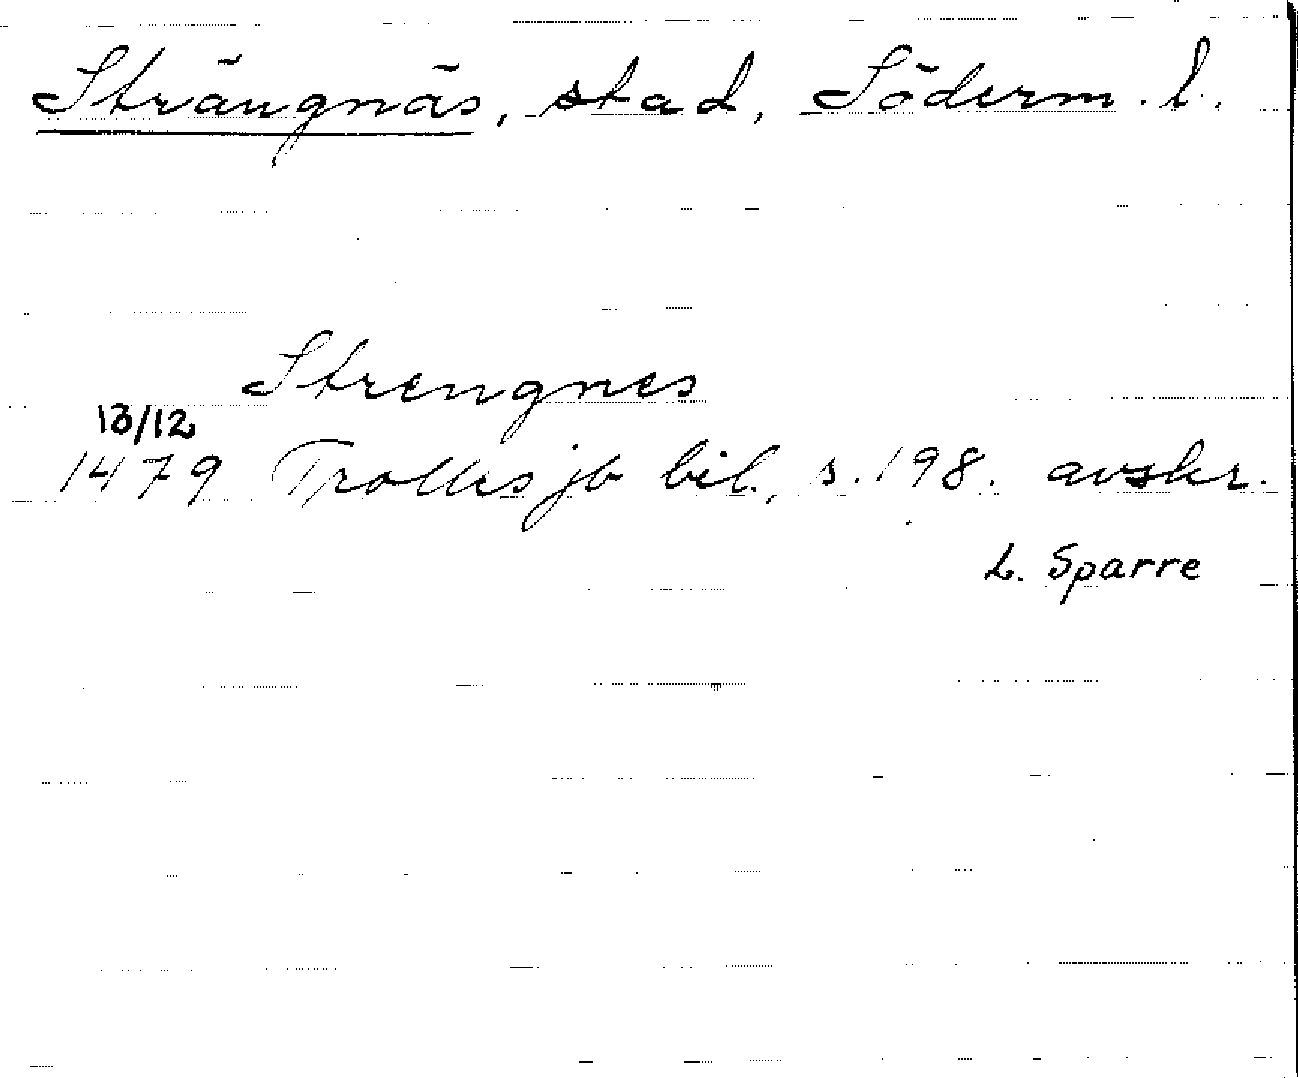 Strängnäs, stad, Söderm. l.
Strengnes
13/12
1479 Trolles jb bil., s. 198. avskr.
L. Sparre